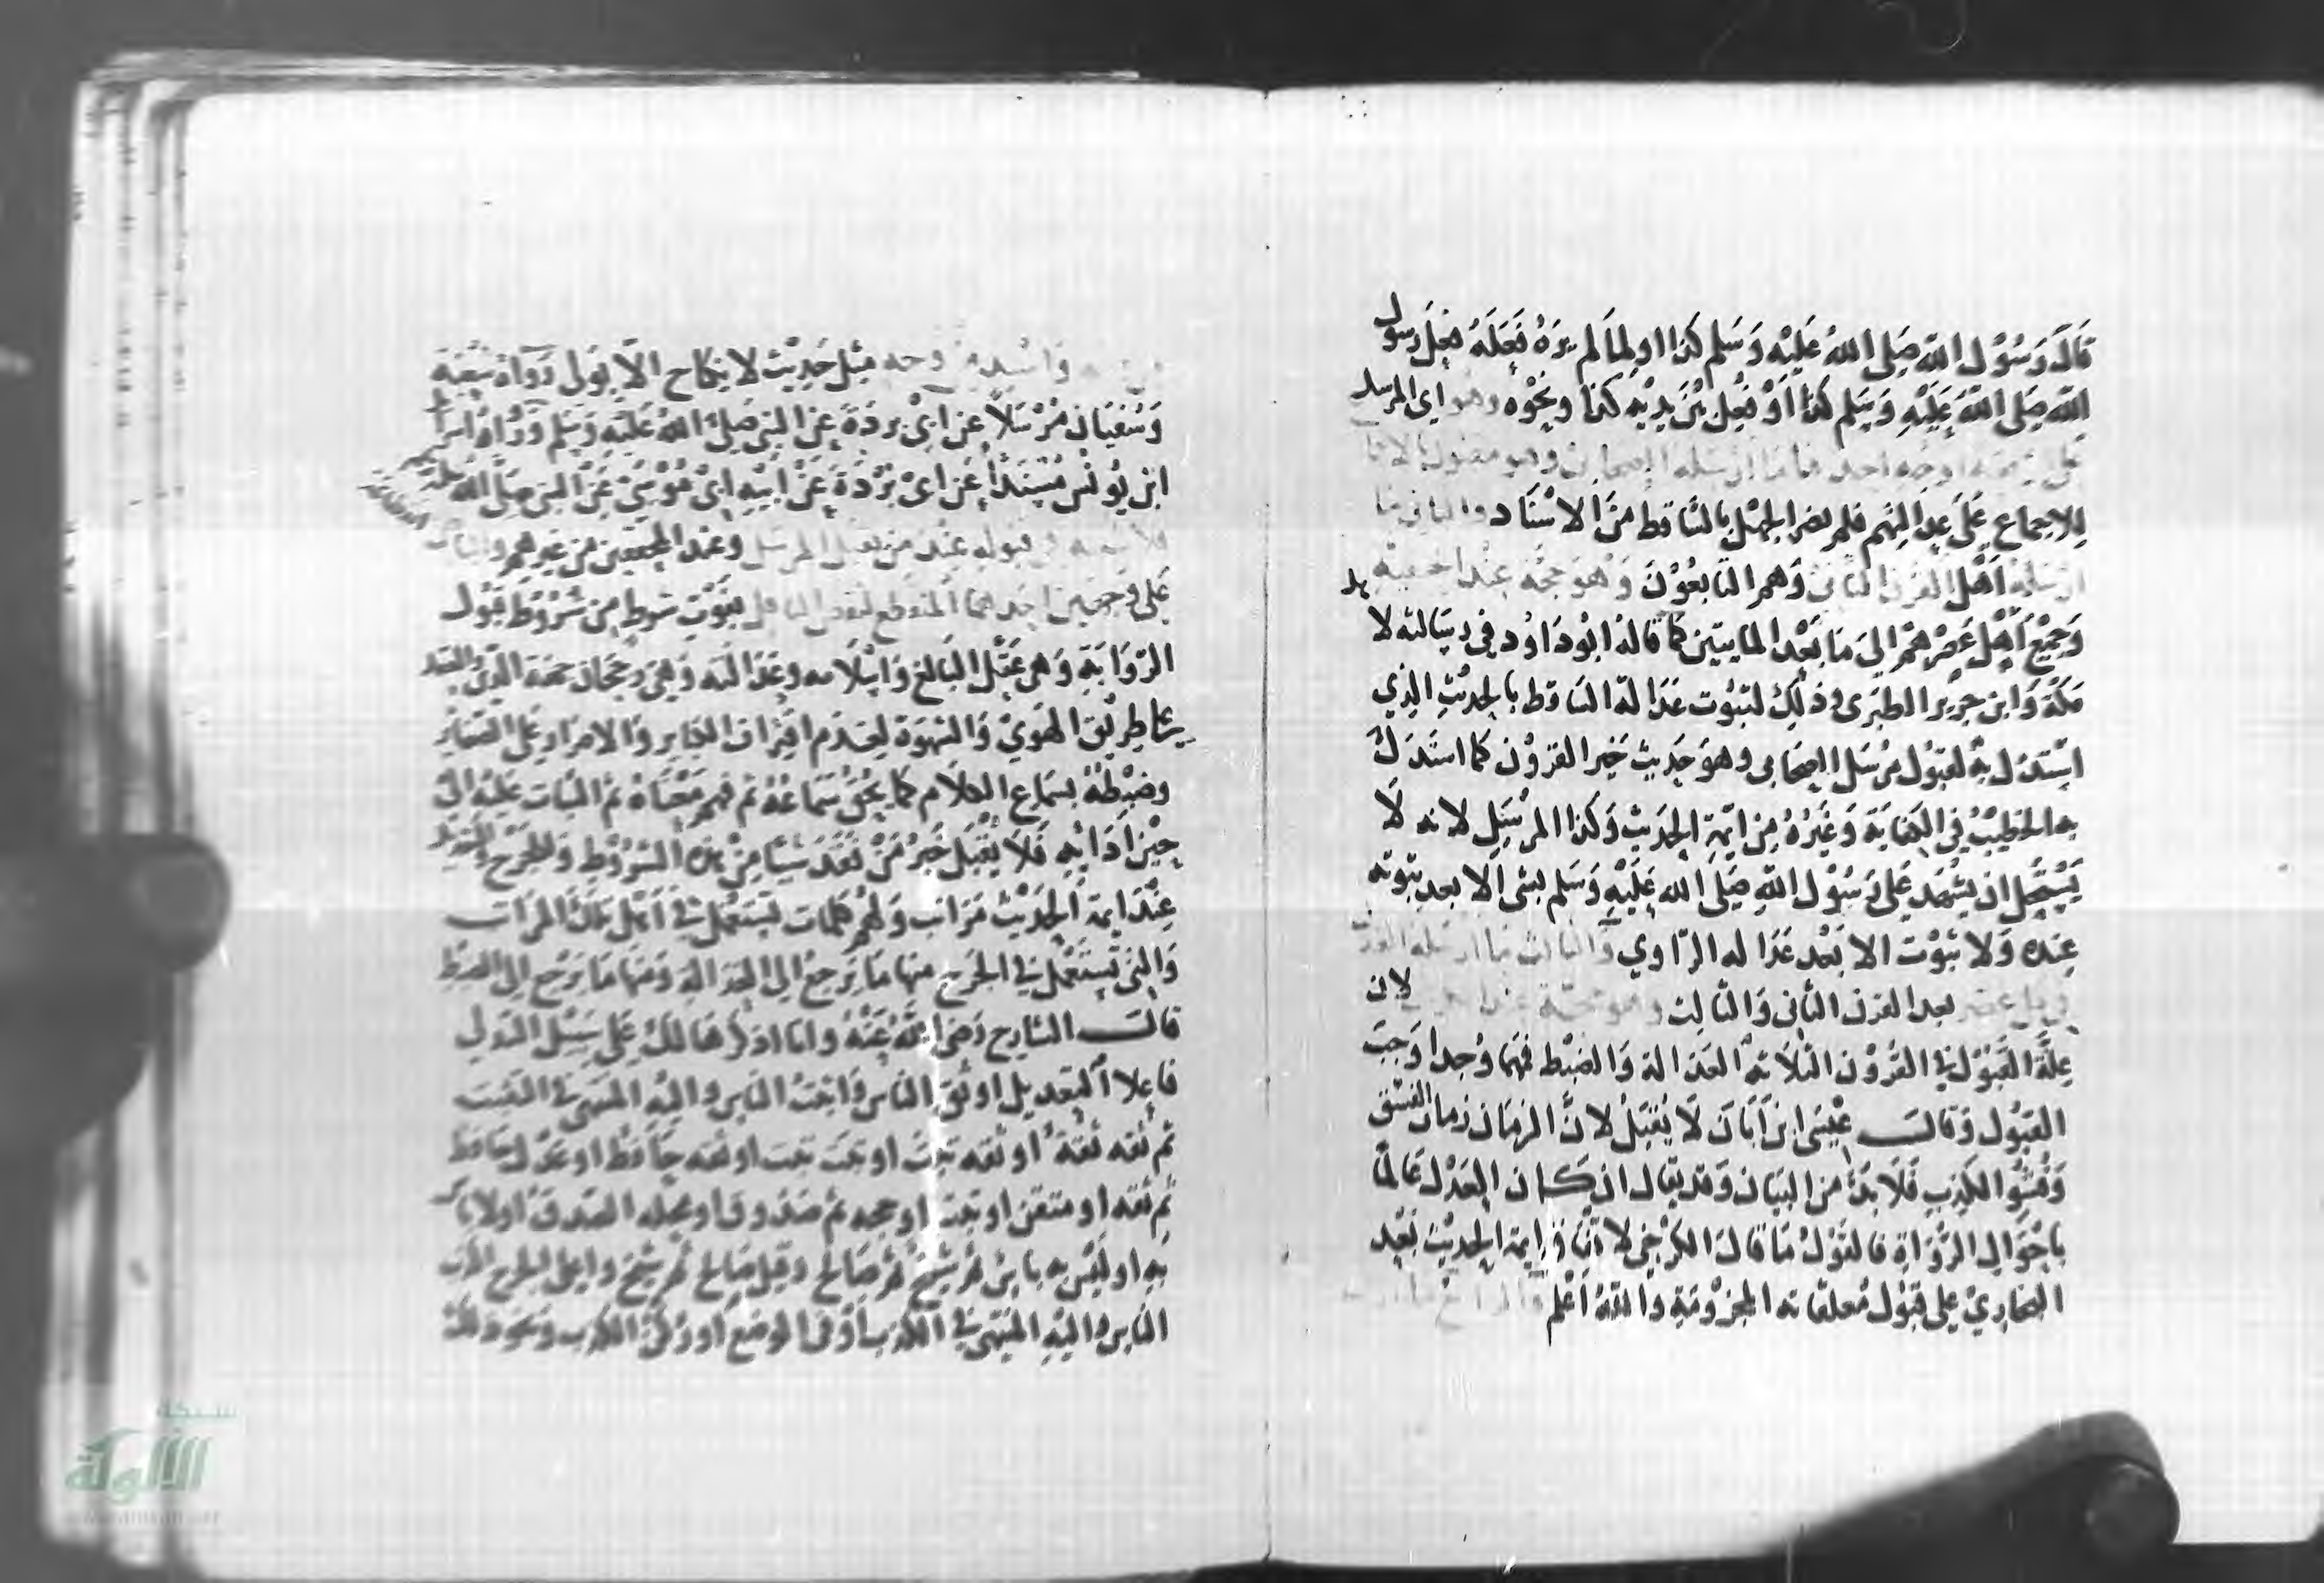 قَالَ رَسُوْل اللّه صَلى اللهُ عَلَيْه وَسَلم كذا او لما لم يرَهُ فَعَلَهُ فعل رسول
الله صَلى اللهُ عَلَيْهِ وَسَلم كذا أوْ فُعِل بَيْنَ يدَيْه كذا ونحْوه وهو اى المرسل
على اربعة اوجه احدها مَا ارْسله الصحابى وهو مقبول
للاجماع عَلَى عدالتهم فلم يضر الجهل بالسّاقط منَ الاسْنَاد والثانى مَا
ارْسَلهُ اَهْل القرن الثانى وَهم التابعُوْنَ وَهوَ حجة عِنْدَ
وَجميْع اَهْل عَصْرهمْ الىَ مَا بَعْد المايتين كما قالهُ ابُو دَاوُد فى رسَالته لا
مَكة وَابن جرير الطبَرى وذلك لثبُوت عَدَالة السَاقط بالحديْث الذي
اسْتدل به لقبُول مُرْسَل الصحابى وهوَ حَديث خَير القرُوْن كما استَدَل
به الخطيْبُ فى الكفايَة وَغيْرُهُ مِن ائمة الحَديْث وَكذا المرْسِل لانه لا
يَسْتحل ان يشهَد عَلى رَسُوْل اللهِ صَلَى الله عَلَيْهِ وَسَلم بشى الا بعد ثبوته
عِنده وَلا ثبُوْت الا بَعْد عَدَا له الرّاوي وَالثالث مَا ارسَله العدْل
فى كل عصر بعد القرن الثانى وَالثالث وهو حجة عند لان
علّة القبُوْل فى القرُوْن الثلاثة العَدَالة وَالضبْط فمهما وُجدا وَجبَ
القبُول وَقالـــ عيْسى ابن اَبَان لَا يُقبَلُ لانَّ الزمَان زمان الفسْق
وَفشُوّ الكذِب فَلَا بدَّ من البيَان وَقد يقال ان كـان العَدْل عَالمًا
باحْوَال الرُّوَاةِ فالقَوْلُ مَا قالهَ الكرْخى لاتفاق ايمة الحديْث بَعْد
البخاريْ على قبُوْل مُعلقاته المجزوْمَةِ وَاللهُ اَعْلم وَالرابع مَا ارسل
من وجه وَاسْند من وجه مثل حَديْث لا نكاح الّا بوَلى رَوَاهُ شعْبَة
وَسُفيَان مُرْسَلًا عن ابىْ بردَةَ عن النبى صَلى اللهُ عَليْهِ وَسَلم وَرَوَاهُ اسرا
ابن يُونس مُسْنَدًا عَن ابىْ بُرْدَةَ عَنْ اَبيْهِ ابىْ مُوْسَىْ عَنِ النبى صَلَّى اللهُ عليه
فلا شبهة فى قبوله عنْدَ من يقبل المرسَل وَعند المحققين من غيرهم والثانى
عَلى وجهَين احدهما المنقطع لنقص الناقل بفوْتِ شرطٍ مِن شُرُوْط قبُول
الروَايَةِ وَهى عَقْل البَالغ وَاسْلَامه وعَدَالته وَهى رجحان جهَة الدّين والعقل
على طريْق الهَوىْ وَالشهْوَة لعدَم اقتراف الكبائر وَالاصرار على الصغاير
وضبْطهُ بسَماع الكلَام كما يحقُّ سَمَاعهُ ثم فهم مَعْنَاهُ ثم الثبات عَليْه الى
حِيْن ادَائه فَلَا يُقبَل خبَرُ مَنْ فقَدَ شيئًا مِنْ هذه الشرُوْط وَللجَرْح
عِنْدَ ايمة الحَدِيْث مَرَاتب وَلهمْ كلمات تسْتَعْمل فى اَهْل تلك المراتب
وَالتى تُسْتعْمل فى الجَرح منها مَا يَرْجع الى العدَالة وَمنها مَا يَرْجع الى الضبط
قالــ الشارح رَضى اللهُ عَنْهُ وَانا اذكرُ هَا لكَ عَلى سَبيْل التدلى
فاعلا التعديل اوثق الناس وَاثبتُ الناس واليْهِ المنتهى فى التثبت
ثم ثقه ثقةٌ او ثقه ثبْتٌ او ثبت ثبت او ثقه حافظ او عدْل حَافظ
ثم ثقه او متقن او ثبت او حجه ثم صَدُوق او محله الصدق او لا باس
به او ليْس به باس ثم شيخ ثم صَالح وقيل صَالح ثم شيخ واعلى الجرح اكذب
الناس واليْهِ المنتهى فى الكذب اوْ فى الوضع اوْ ركن الكذب ونحو ذلك